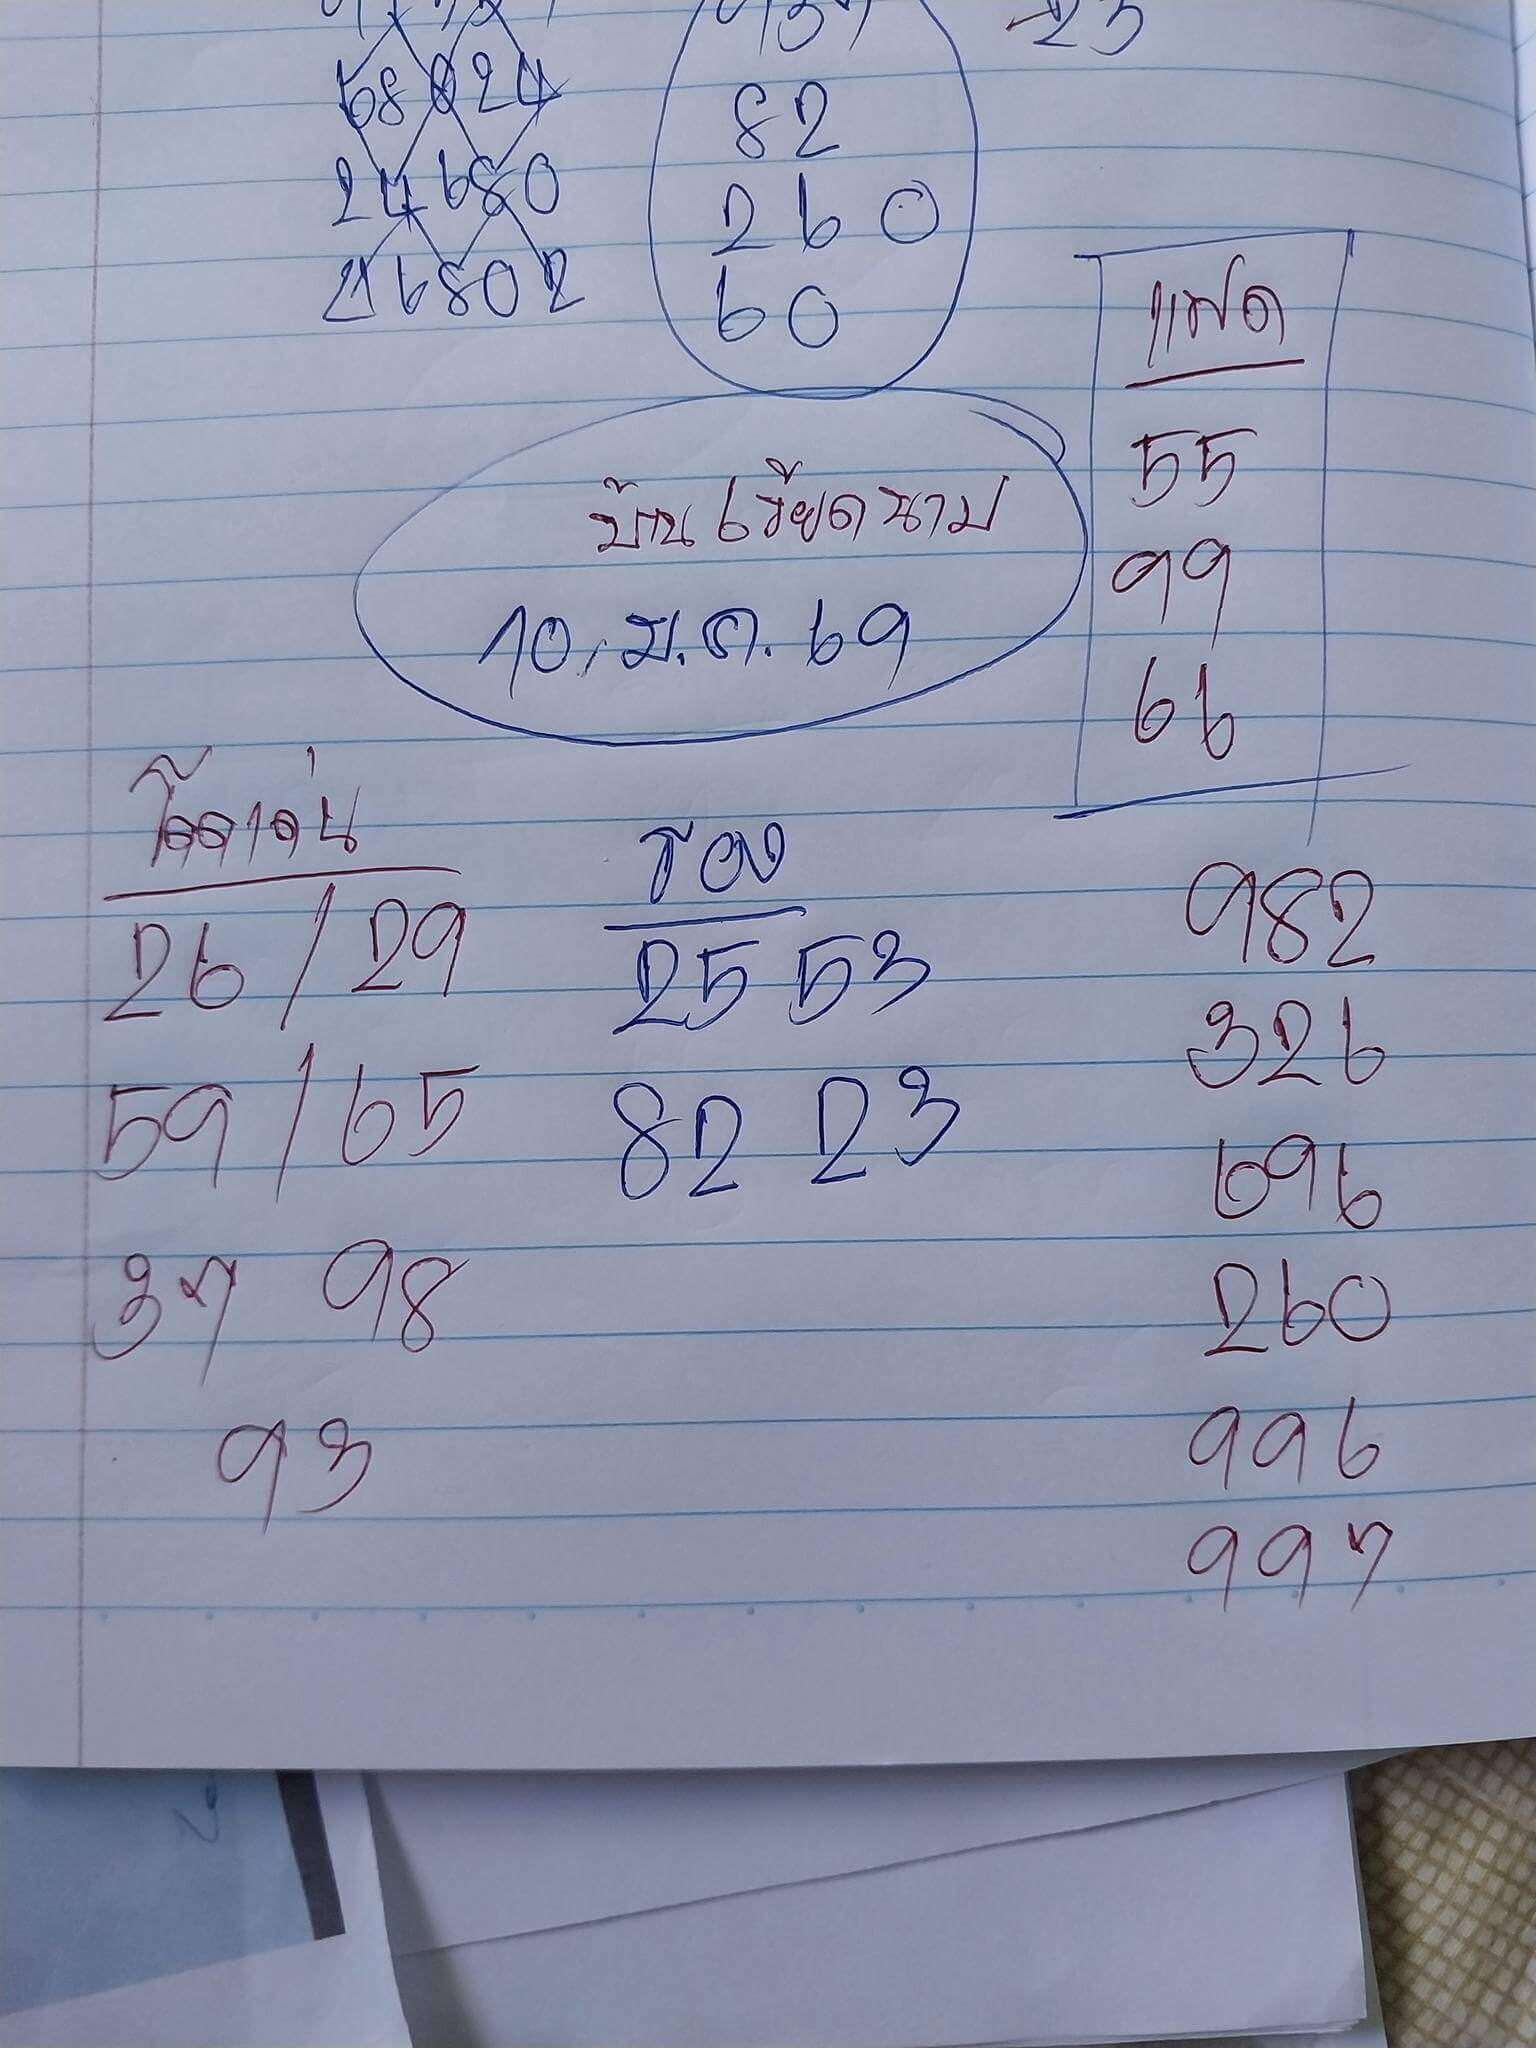 68024
24680
46802
937
82
260
60
23
แฝด
55
99
66
บ้านเวียดนาม
10.ม.ค.69
โดดเด่น
26/29
59/65
37 98
93
รอง
25 53
82 23
982
326
696
260
996
997